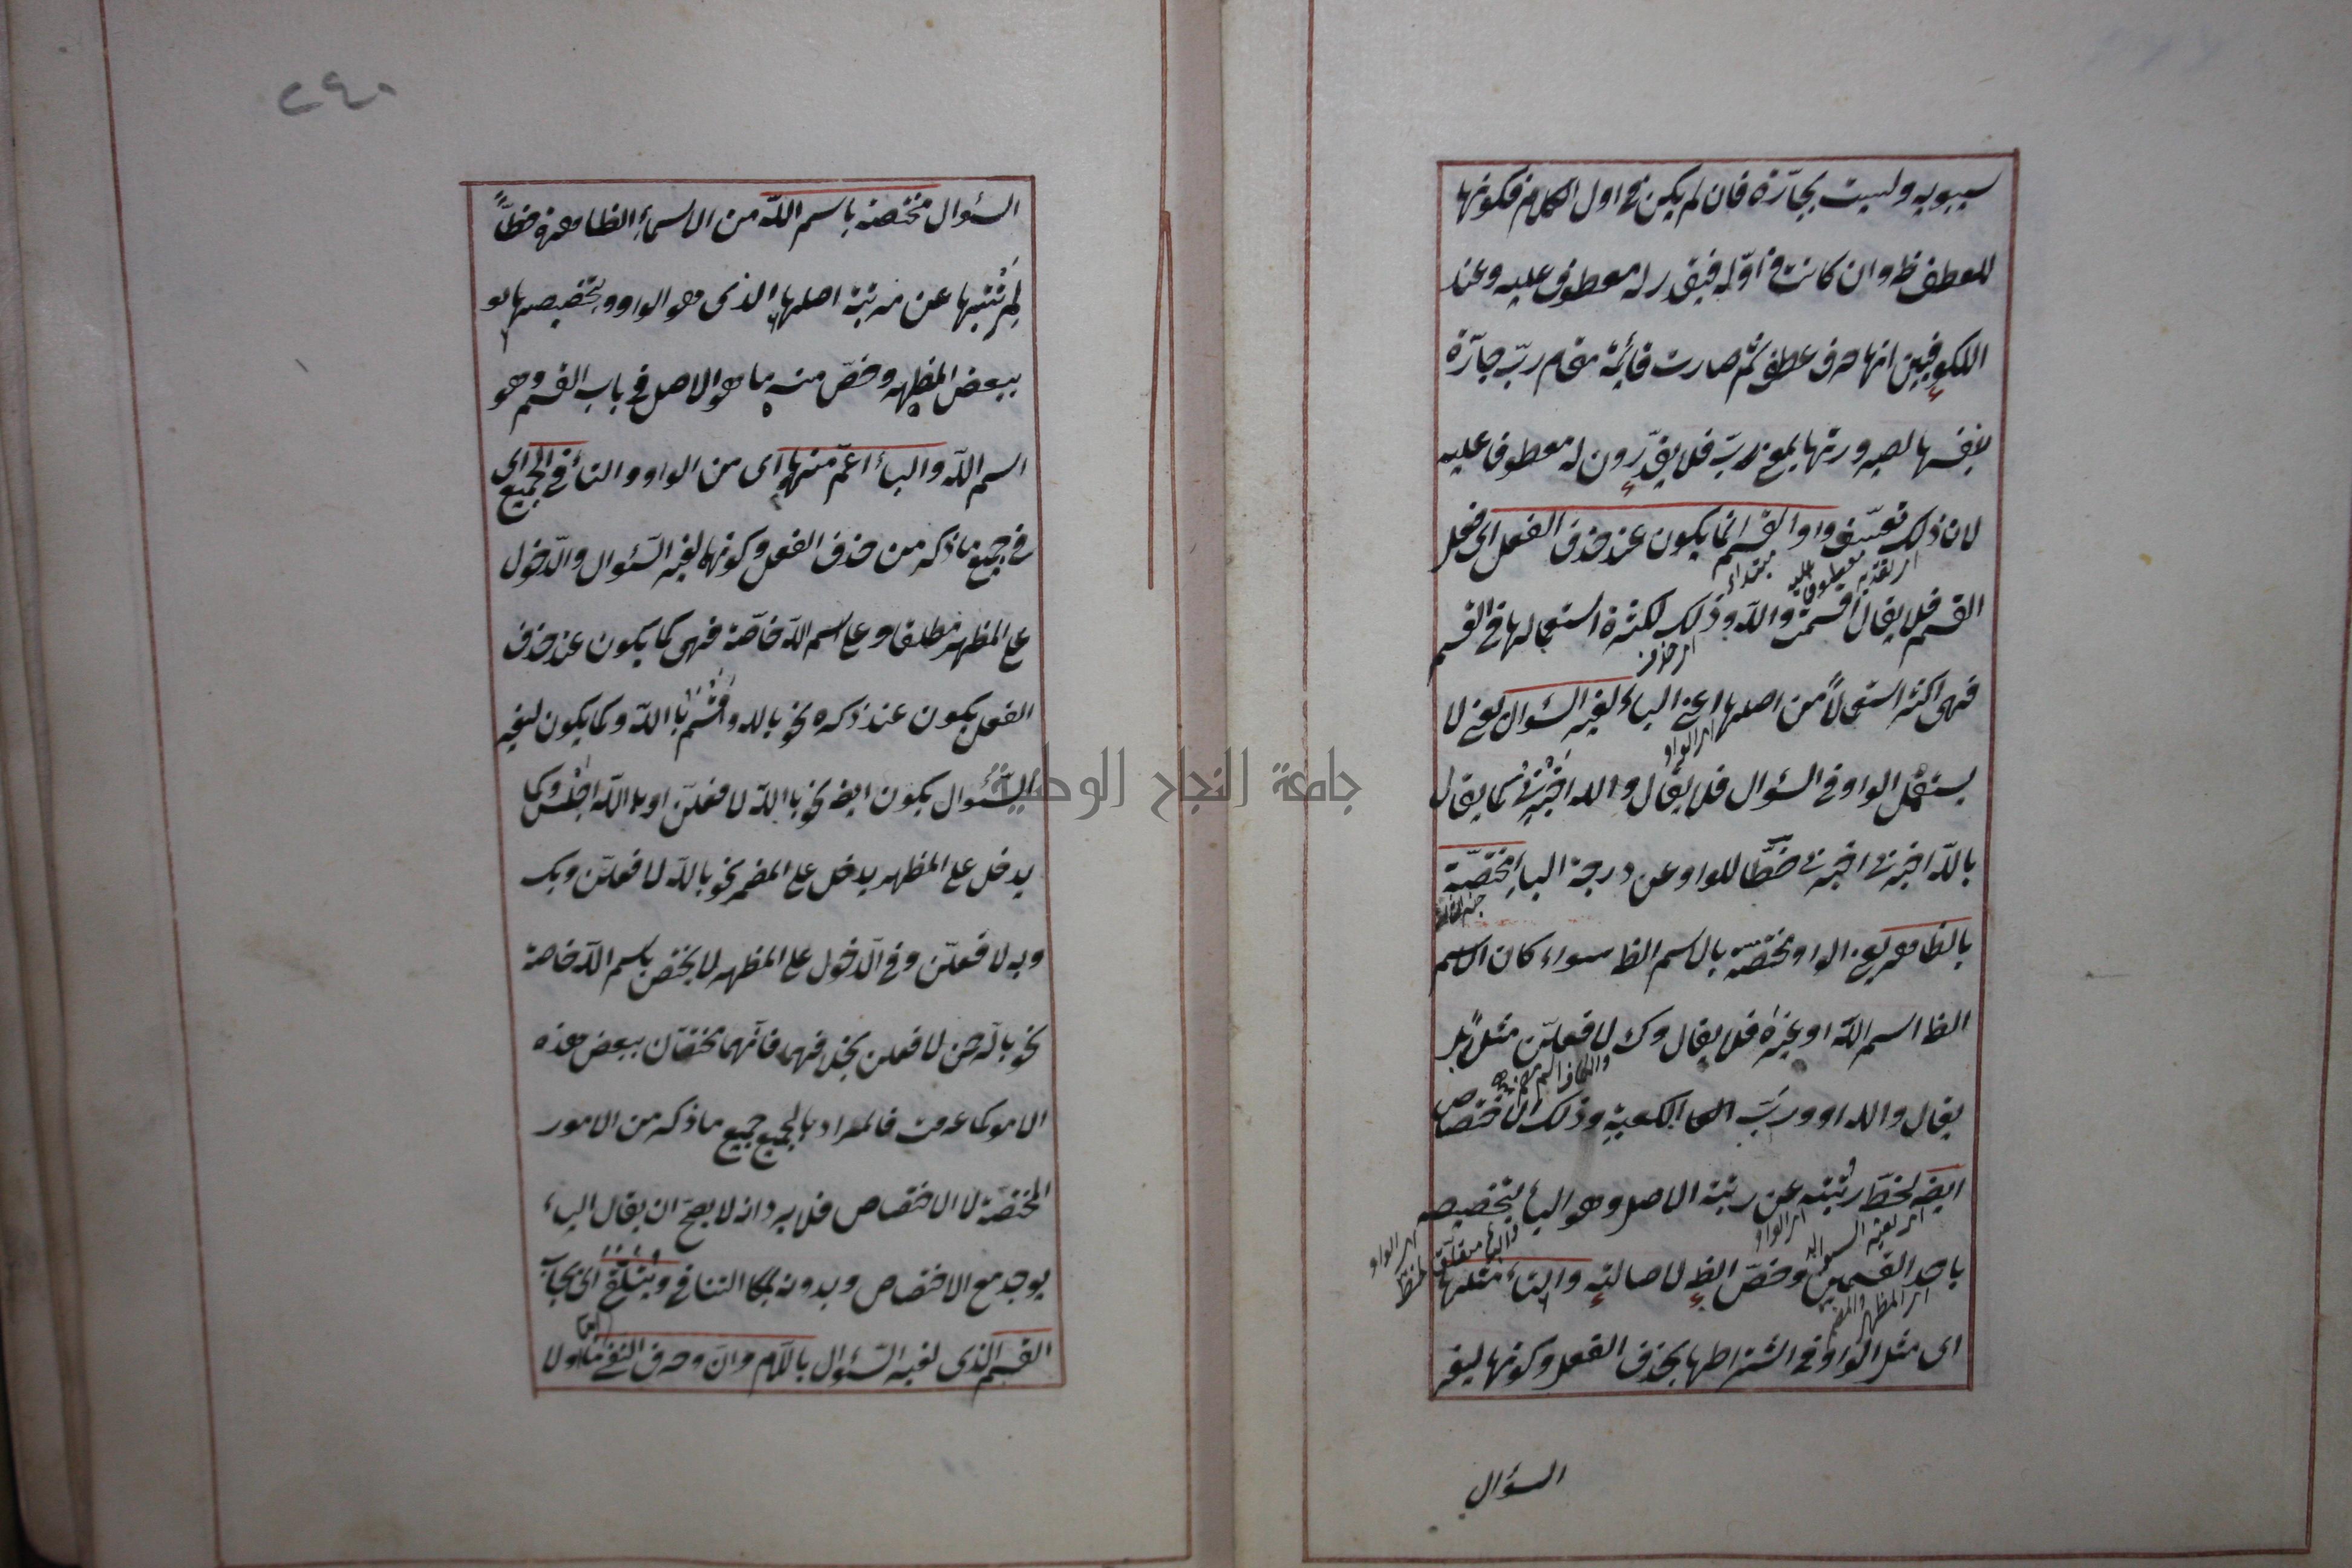 سيبويه وليست بجارّة فان لم يكن في اول الكلام فكونها
للعطف ظ وان كانت في اوّله فيقدر له معطوف عليه وعند
الكوفيين انها حرف عطف ثم صارت قائمة مقام ربّ جارّة
بنفسها لصيرورتها بمعنى ربّ فلا يقدّرون له معطوف عليه
لان ذلك تعسّف وواو القسم انما يكون عند حذف الفعل اى فعل
اى تقدير معطوف عليه
مبتداء
القسم فلا يقال اقسمت والله وذلك لكثرة استعمالها في القسم
اى حذف
فهى اكثر استعمالاً من اصلها اعنى الباء لغير السؤال يعنى لا
اى الواو
يستعمل الواو في السؤال فلا يقال والله اخبرنى كما يقال
بالله اخبرنى اخبرنى حطّا للواو عن درجة الباء مختصّة
بالظاهر يعنى الواو مختصّة بالاسم الظ سواء كان الاسم
الظ اسم الله او غيره فلا يقال وك لافعلنّ مثلاً بل
يقال والله او وربّ الكعبة وذلك الاختصاص
ايضا لحطّ رتبته عن رتبة الاصل وهو الباء بتخصيصه
اى الواو
باحد القسمين وخصّ الظ لاصالته والتاء مثلها
اى المظهر والمضمر
اى مثل الواو في اشتراطها بحذف الفعل وكونها لغير
السؤال
٢٤٠
السؤال مختصة باسم الله من الاسماء الظاهرة حطّاً
لمرتبتها عن مرتبة اصلها الذى هو الواو بتخصيصها
ببعض المظهر وخصّ منه ما هو الاصل في باب القسم وهو
اسم الله والباء اعمّ منهما اى من الواو والتاء في الجميع اى
في جميع ما ذكر من حذف الفعل وكونها لغير السّؤال والدّخول
على المظهر مطلقا وعلى اسم الله خاصّة فهى كما يكون عند حذف
الفعل يكون عند ذكره نحو بالله واقسم بالله وكما يكون لغير
السّؤال يكون ايضا نحو بالله لافعلنّ او بالله اجلس وكما
يدخل على المظهر يدخل على المضمر نحو بالله لافعلنّ وبك
وبه لافعلنّ وفي الدّخول على المظهر لا يختص باسم الله خاصة
نحو بالرّحمن لافعلن بخلافهما فانّهما مختصّان ببعض هذه
الامور كما عرفت فالمراد بالجميع جميع ما ذكر من الامور
المختصّة لا الاختصاص فلا يرد انه لا يصحّ ان يقال الباء
يوجد مع الاختصاص وبدونه لمكان التنافى ويُتلقّى اى يجاب
القسم الذى لغير السّؤال باللّام وانّ وحرف النفى ما ولا
جامعة النجاح الوطنية